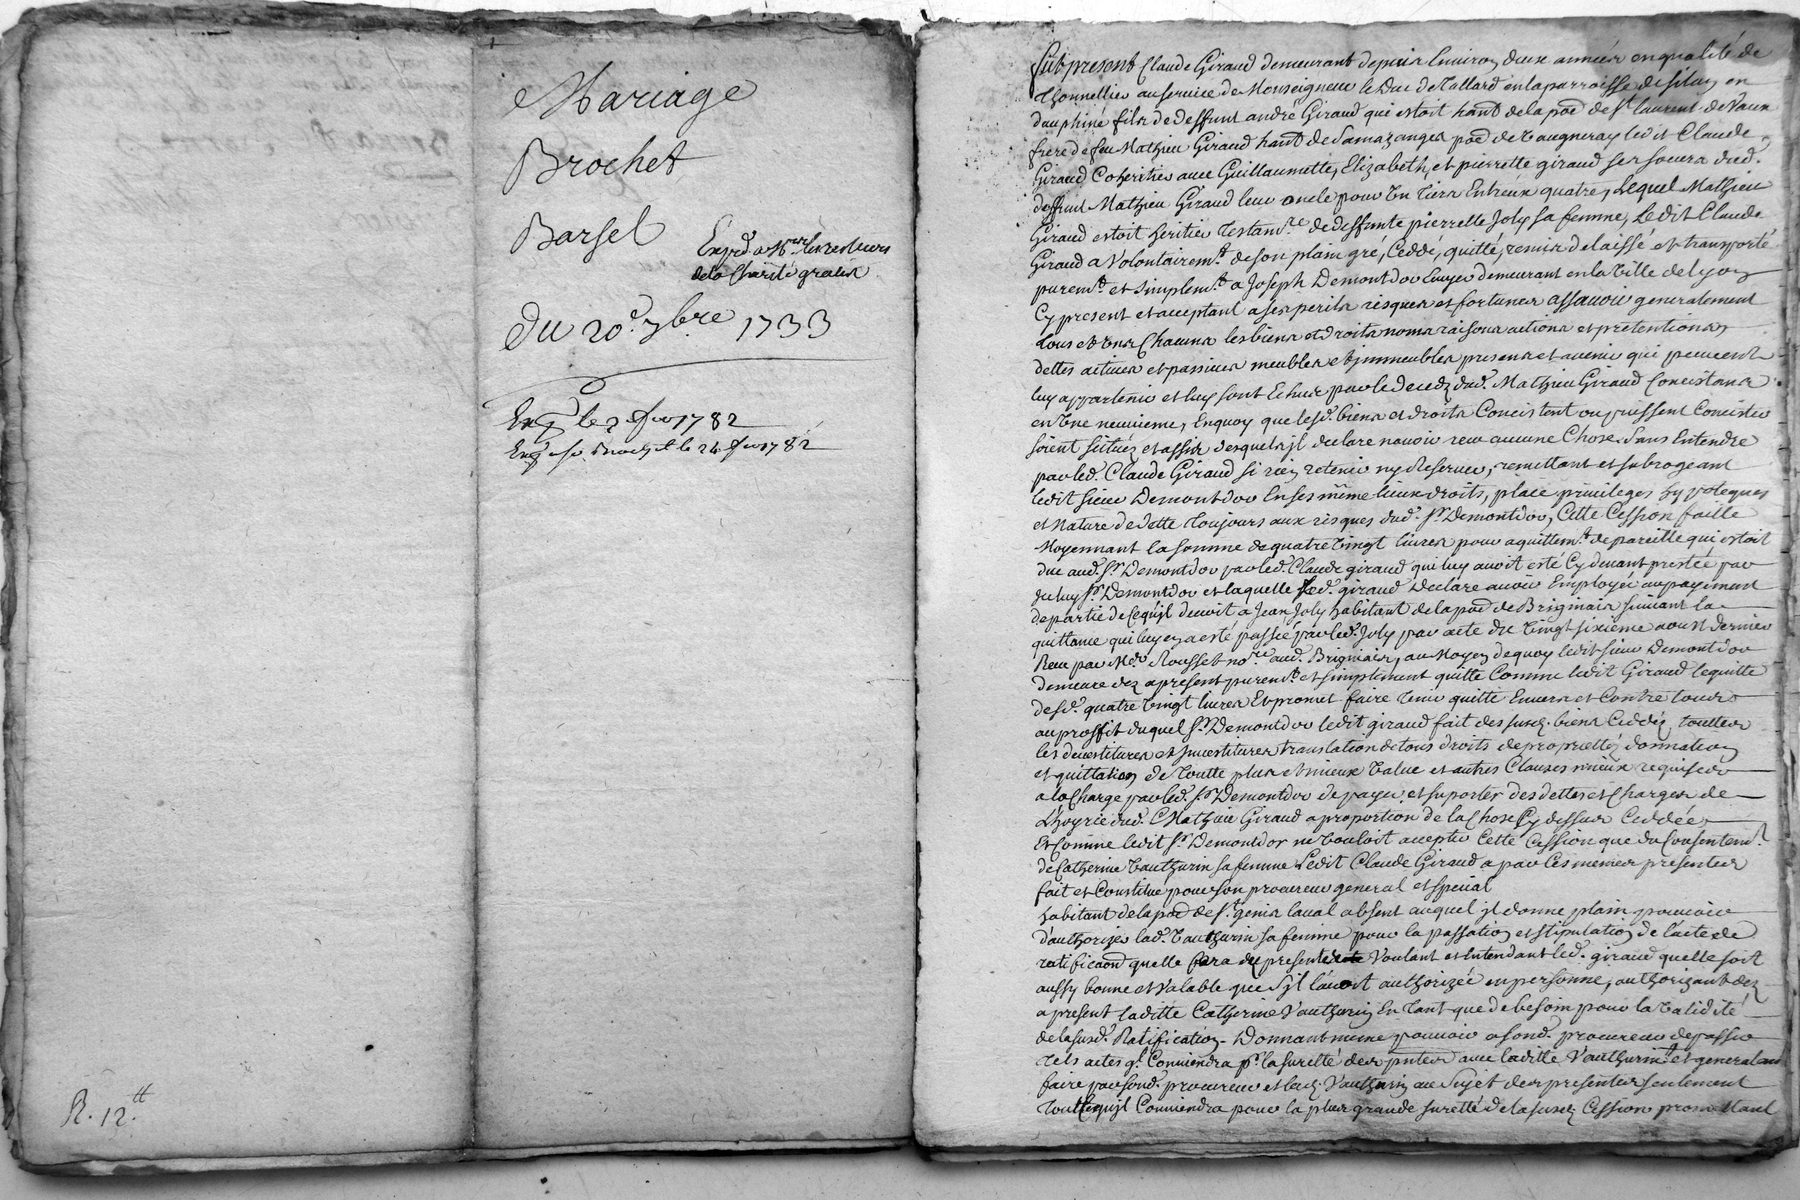 Mariage
Brochet
Barsel
Exp.d a Mrs les recteurs
de la Charité gratis
du 20.e 7bre 1733
Exp. le 1782
Exp. le 24 1782
R. 12.tt
Fut present Claude Giraud demeurant depuis Environ deux années en qualité de
thonnellier au service de Monseigneur le Duc de Tallard en la parroisse de silan en
dauphiné fils de deffunt andré Giraud qui estoit hant de la poe de St laurent de Vaux
frere de feu Mathieu Giraud hant de Lamazanges poe de Vaugneray ledit Claude
Giraud Coheritier avec Guillaumette, Elizabeth, et pierrette giraud ses soeurs dud.
deffunt Mathieu Giraud leur oncle pour un tiers Entreux quatre, Lequel Mathieu
Giraud estoit heritier testam.re de deffunte pierrette Joly sa femme, Ledit Claude
Giraud a Volontairem.t de son plain gré, Ceddé, quitté, remis delaissé et transporté
purem.t et simplem.t a Joseph Demontdor Ecuyer demeurant en la Ville de Lyon
Cy present et acceptant a ses perils risques et fortunes assavoir generalement
tous et uns Chacuns les biens et droits noms raisons actions et pretentions
dettes actives et passives meubles et immeubles presens et avenir qui peuvent
luy appartenir et luy sont Echus par le decez dud. Mathieu Giraud Concistans
en une neuvieme, Enquoy que lesd. biens et droits Concistent ou puissent Concister
soient scituez et assis desquels il declare n'avoir reçu aucune Chose Sans Entendre
par led. Claude Giraud si rien retenir ny Reserver, remettant et subrogeant
ledit sieur Demontdor En ses même lieux droits, place privileges hypoteques
et Nature de dette toujours aux risques dud. Sr Demontdor, Cette Cession faitte
Moyennant la somme de quatre Vingt livres pour aquittem.t de pareille qui estoit
due aud. Sr Demontdor par led. Claude giraud qui luy avoit esté Cy devant prestée par
deluy Sr Demontdor et laquelle led. giraud Declare avoir Employée au payement
de partie de ce qu'il devoit a Jean Joly habitant de la poe de Brignais suivant la
quittance qui luy en a esté passée par led. Joly par acte du Vingt sixieme aoust dernier
Reçu par Me Rousset no.re aud. Brignais, au Moyen de quoy ledit sieur Demontdor
demeure dez apresent purem.t et simplement quitte Comme ledit Giraud le quitte
desd. quatre Vingt livres Et promet faire tenir quitte Envers et Contre tous
au proffit duquel Sr Demontdor ledit giraud fait des susd. biens Ceddez touttes
les devestitures et Investitures translation de tous droits de proprietté, donnation
et quittation de toutte plus et mieux Value et autres Clauses mieux requises
a la Charge par led. Sr Demontdor de payer et suporter des dettes et Charges de
L'hoyrie dud. Mathieu Giraud a proportion de la Chose Cy dessus Ceddée
Et Comme ledit Sr Demontdor ne Vouloit accepter Cette Cession que du Consentem.t
de Catherine Vauthurin sa femme Ledit Claude Giraud a par Ces memes presentes
fait et Constitue pour son procureur general et special
habitant de la poe de St genis laval absent auquel il donne plain pouvoir
d'authorizer lad. Vauthurin sa femme pour la passation et stipulation de l'acte de
ratificaon quelle fera des presentes Voulant et Entendant led. giraud quelle soit
aussy bonne et Valable que s'il l'avoit authorizée en personne, authorizant dez
apresent laditte Catherine Vauthurin En tant que de besoin pour la Validité
de la susd. Ratification - Donnant meme pouvoir a sond. procureur de passer
tels actes q.l Conviendra p.r la suretté des pntes avec laditte Vauthurin, et generalem.t
faire par sond. procureur et lad. Vauthurin au Sujet des presentes seulement
tout ce qu'il Conviendra pour la plus grande suretté de la susd. Cession promettant